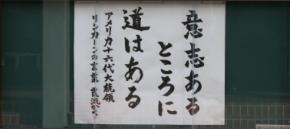 意志ある
ところに
道はある
アメリカ十六代大統領
リンカーンの言葉